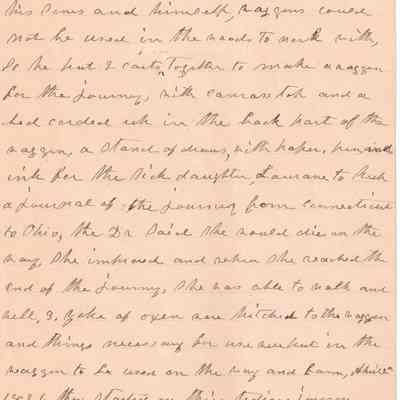 his sons and himself, waggons could
not be used in the woods to work with,
So he put 2 carts together to make a waggon
for the journey, with canvas top and a
bed corded up in the back part of the
waggon, a stand of draws, with paper, pen and
ink for the sick daughter, Laurane to keep
a journal of the journey from Connecticut
to Ohio, the Dr said she would die on the
way, She improved and when she reached the
end of the journey, she was able to walk and
well, 3, yoke of oxen were hitched to the waggon
and things necessary for use were put in the
waggon to be used on the way and Farm,
they started on this tedious journey